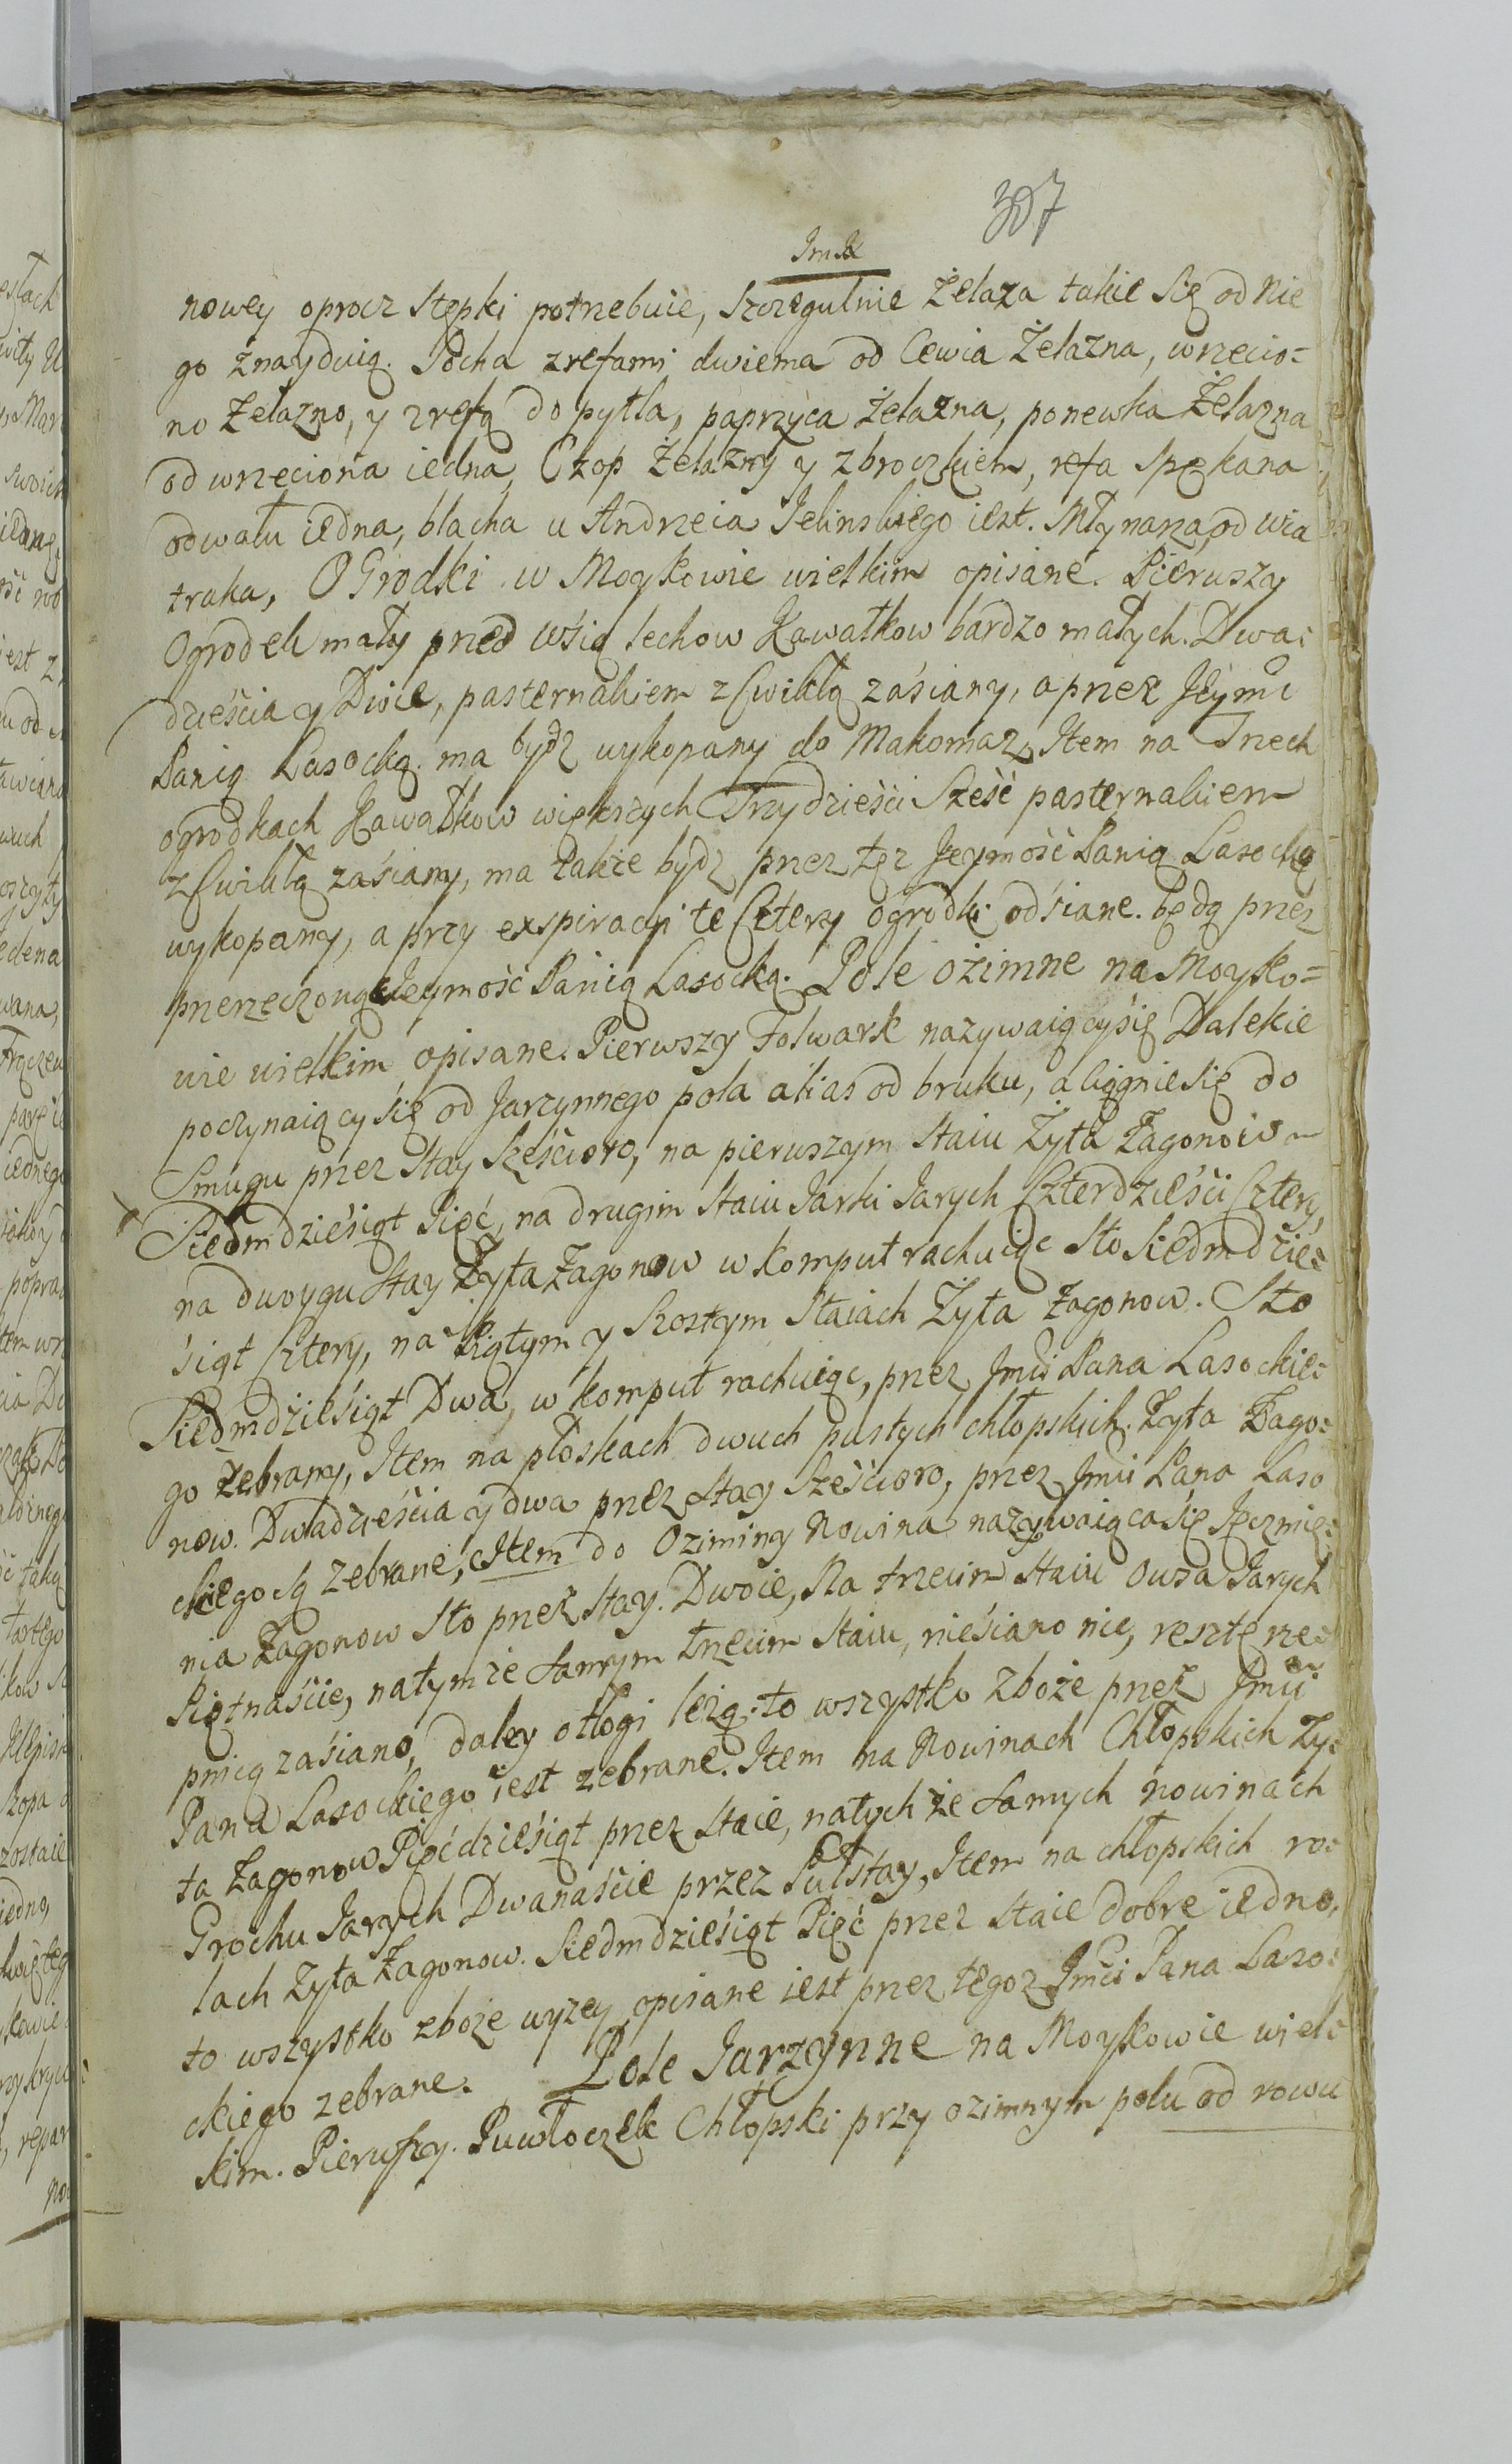 307
nowey oprocz stępki potrzebuie, szczegulnie Żelaza takie się od nie
go znayduią. Pocha z refami dwiema od Cewia Żelazna, wrzecio=
no Żelazno, y z refą do pytla, paprzyca żelazna, ponewka Żelazna
od wrzeciona iedna, Czop żelazny y z broczkiem, refa spękana
od wału iedna, blacha u Andrzeia Jelinskiego iest. Młynarza, od wia
traka, OGrodki w Moykowie wielkim opisane. Pierwszy
Ogrodek mały przed wsią lechow Kawałkow bardzo małych. Dwa=
dzieścia y Dwie, pasternakiem z Ćwikłą zasiany, a przez Jeymć
Panią Lasocką. ma bydź wykopany do Makomaz, Item na Trzech
ogrodkach Kawałkow większych Trzydzieści Sześć pasternakiem
z Ćwikłą zasiany, ma także bydź przez tęż Jeymość Panią Lasocką
wykopany, a przy exspiracyi te Cztery ogrodki odsiane. będą przez
przerzeczoną Jeymość Panią Lasocką. Pole oźimne na Moyko=
wie wielkim opisane. Pierwszy Folwark nazywaiący się Dalekie
poczynaiący się od Jarzynnego pola alias od bruku, a ciągnie się do
Smugu przez Stay Sześcioro, na pierwszym Staiu Żyta Żagonow
Siedmdziesiąt Pięć, na drugim Staiu Jarki Jarych Czterdzieści Cztery,
na dwoygu Stay Żyta Żagonow w komput rachuiąc Sto Siedmdzie=
siąt Cztery, na Piątym y Szostym Staiach Żyta żagonow. Sto
Siedmdziesiąt Dwa, w komput rachuiąc, przez Jmci Pana Lasockie=
go żebrany, Item na płoskach dwuch pustych chłopskich. Żyta Żago=
now. Dwadzieścia y dwa przez Stay Sześcioro, przez Jmci Pana Laso
ckiego są zebrane, Item do Oziminy Nowina nazywaiąca się Jęczmię=
nia Żagonow Sto przez Stay. Dwoie, Na trzecim Staiu Owsa Jarych
Piętnaście, na tymże samym trzecim Staiu, niesiano nic, resztę rze=
pnią zasiano, daley otłogi leżą. to wszystko zboże przez Jmci
Pana Lasockiego iest zebrane. Item na Nowinach Chłopskich Ży=
ta Żagonow Pięćdziesiąt przez Staie, na tychże samych nowinach
Grochu Jarych Dwanaście przez Pułstay, Item na chłopskich ro=
lach Żyta Żagonow. Siedmdziesiąt Pięć przez Staie dobre iedno,
to wszystko zboże wyzey opisane iest przez tegoż Jmci Pana Laso=
ckiego zebrane. Pole Jarzynne na Moykowie wiel=
kim. Pierwszy. Puwłoczek Chłopski przy ozimnym polu od rowu